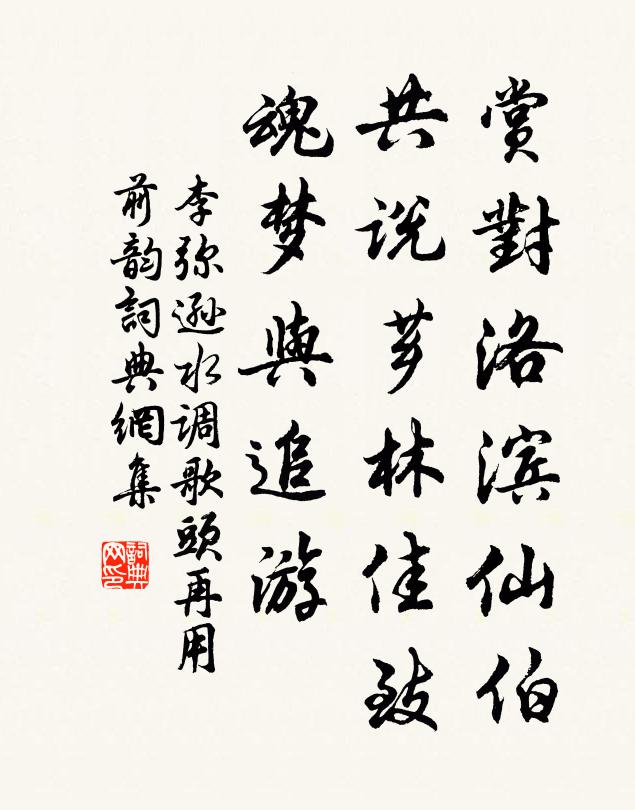 賞對洛滨仙伯
共说芗林佳致
魂梦與追游
李弥遜水调歌頭再用
前韵詞典網集
詞典
网印